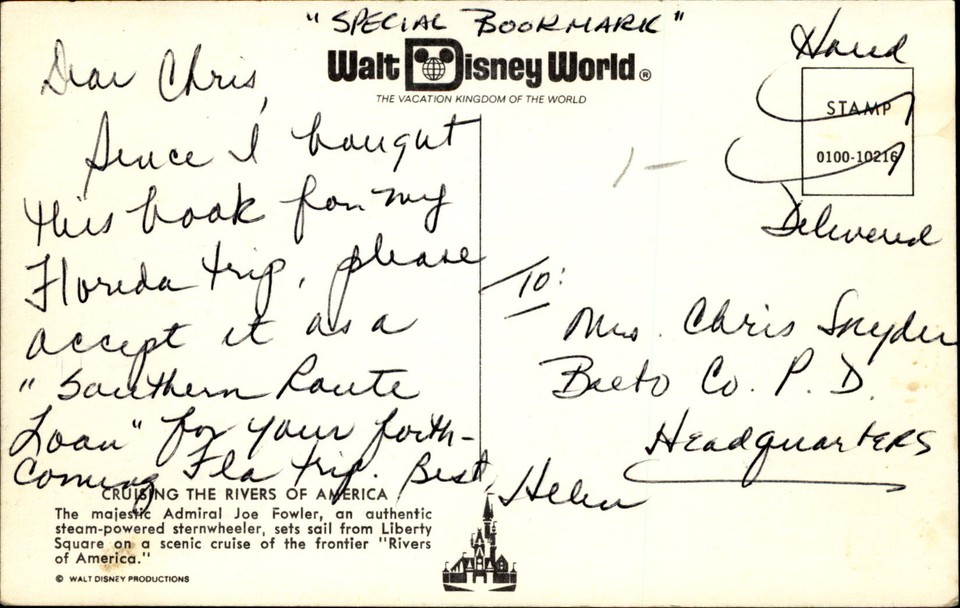 "SPECIAL BOOKMARK"
Walt Disney World®
THE VACATION KINGDOM OF THE WORLD
Hand
STAMP
0100-10216
Delivered
Dear Chris,
Since I bought
this book for my
Florida trip, please
accept it as a
"Southern Route
Loan" for your forth-
coming Fla trip. Best,
Helen
To:
Mrs. Chris Snyder
Co. P. D.
HeadquartERS
CRUISING THE RIVERS OF AMERICA
The majestic Admiral Joe Fowler, an authentic
steam-powered sternwheeler, sets sail from Liberty
Square on a scenic cruise of the frontier "Rivers
of America."
© WALT DISNEY PRODUCTIONS